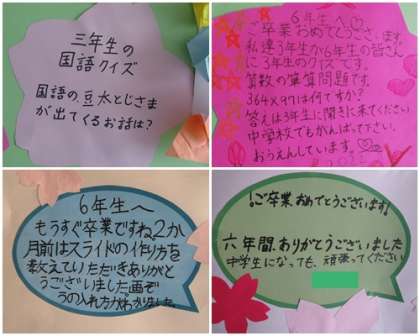 三年生の
国語クイズ
国語の、豆太とじさま
が出てくるお話は？
6年生へ♡
ご卒業おめでとうござい、ます。
私達3年生から6年生の皆さん
に3年生のクイズです。
算数の筆算問題です。
364×97は何ですか？
答えは3年生に聞きに来てください
中学校でもがんばって下さい。
おうえんしています。♡
6年生へ
もうすぐ卒業ですね2か
月前はスライドの作り方を
教えていただきありがと
うございました画ぞ
うの入れ方がわかりました。
「ご卒業おめでとうございます」
六年間、ありがとうございました
中学生になっても、頑張ってください